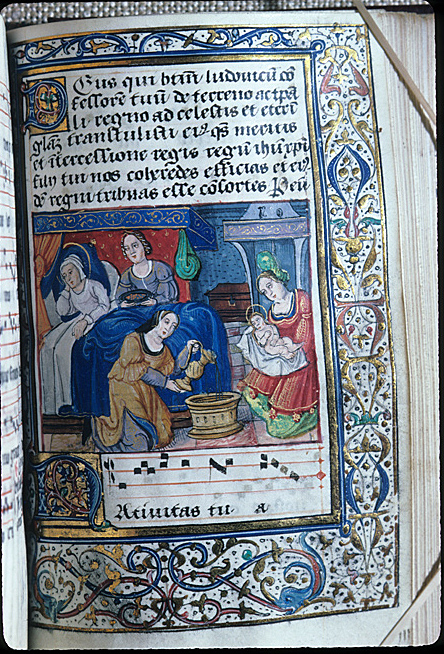 DEus qui btm̄ ludovicū cō
fessorē tuū de terreno ac tpa
li regno ad celestis et eterni
glaʒ transtulisti eiꝰ qs̄ meritis
et ītercessione regis regū ihu xpi
filii tui nos coheredes efficias et eiꝰ
dē regni tribuas esse cōsortes Peū
NAtivitas tu a